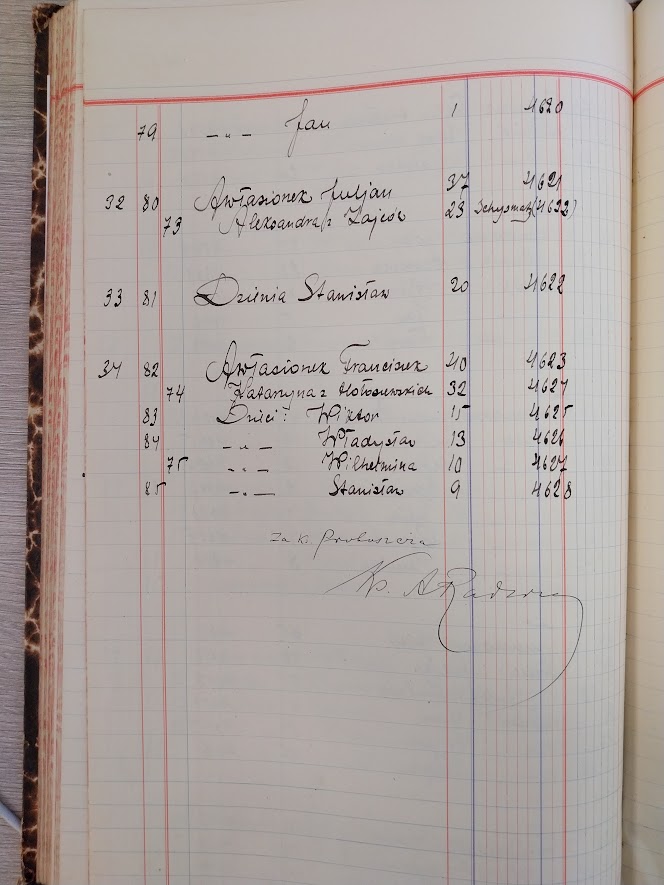 79 — „ — Jan 1 4620
32 80 Awłasionek Juljan 37 4621
73 Aleksandra z Zajców 23 Schyzmat. (4632)
33 81 Dzienia Stanisław 20 4622
34 82 Awłasionek Franciszek 40 4623
74 Katarzyna z Hołoszewskich 32 4624
83 Dzieci: Wiktor 15 4625
84 — „ — Władysław 13 4626
75 — „ — Wilhelmina 10 4627
85 — „ — Stanisław 9 4628
Za k. Proboszcza
Ks. A